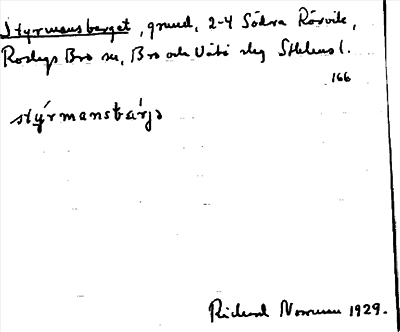 Styrmansberget, grund, 2-4 Södra Rörvik,
Roslags Bro sn, Bro och Vätö skg Sthlms l.
166
stýrmansbárjə
Richard Norrman 1929.